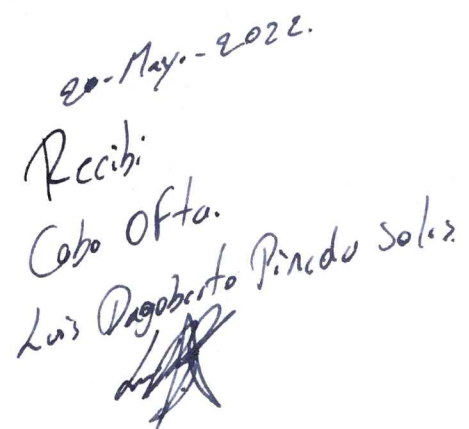 20-May.-2022.
Recibi
Cabo Ofta.
Luis Dagoberto Pinedo Solis.